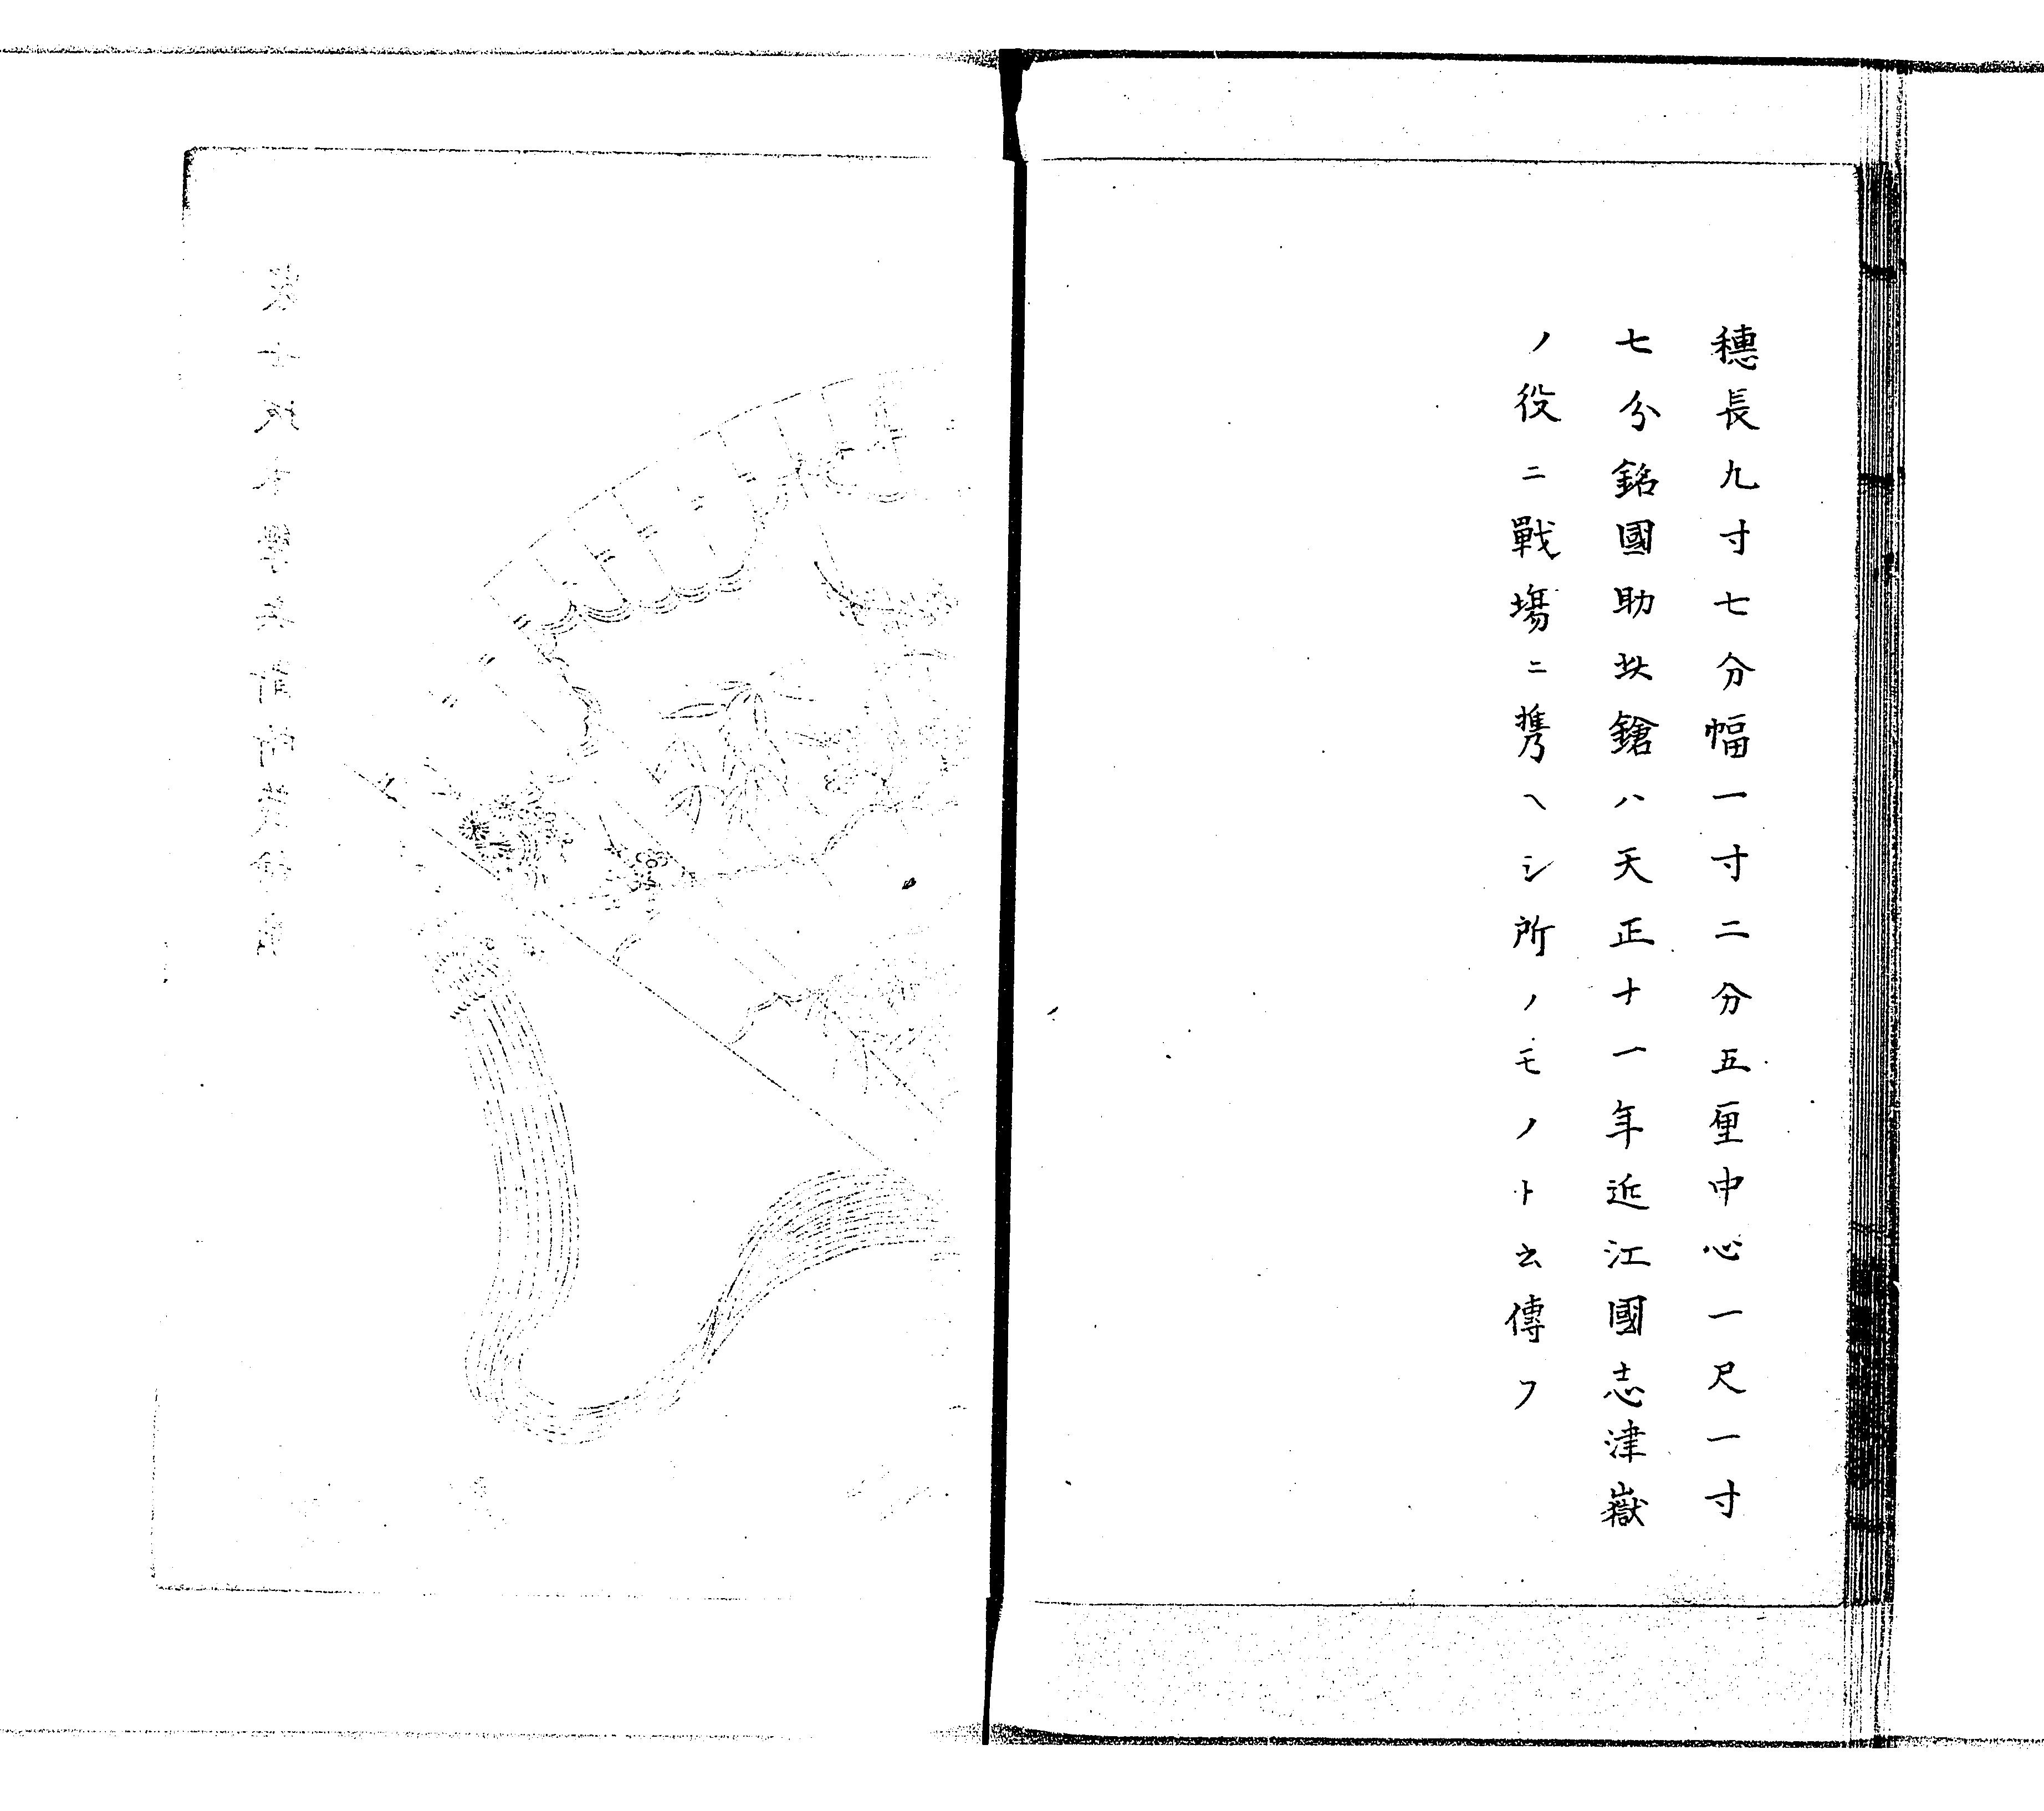 穗長九寸七分幅一寸二分五厘中心一尺一寸
七分銘國助此鎗ハ天正十一年近江國志津嶽
ノ役ニ戰塲ニ携ヘシ所ノモノト云傳フ